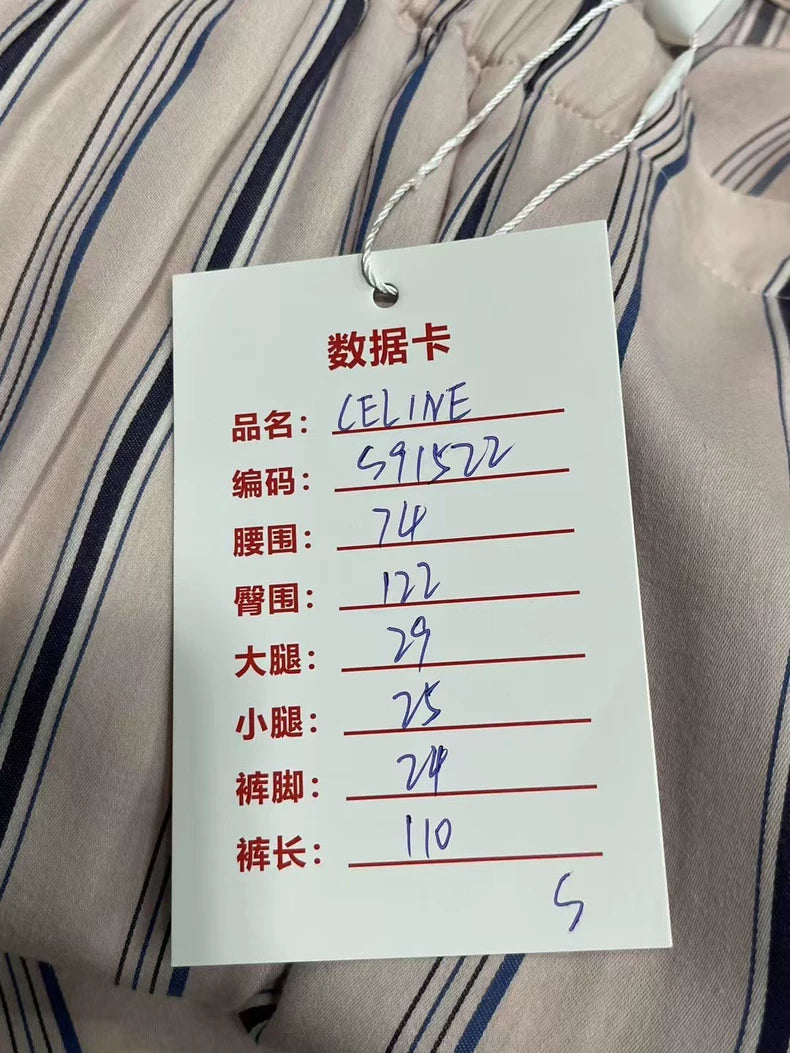 数据卡
品名：CELINE
编码：S91522
腰围：74
臀围：122
大腿：29
小腿：25
裤脚：24
裤长：110
S